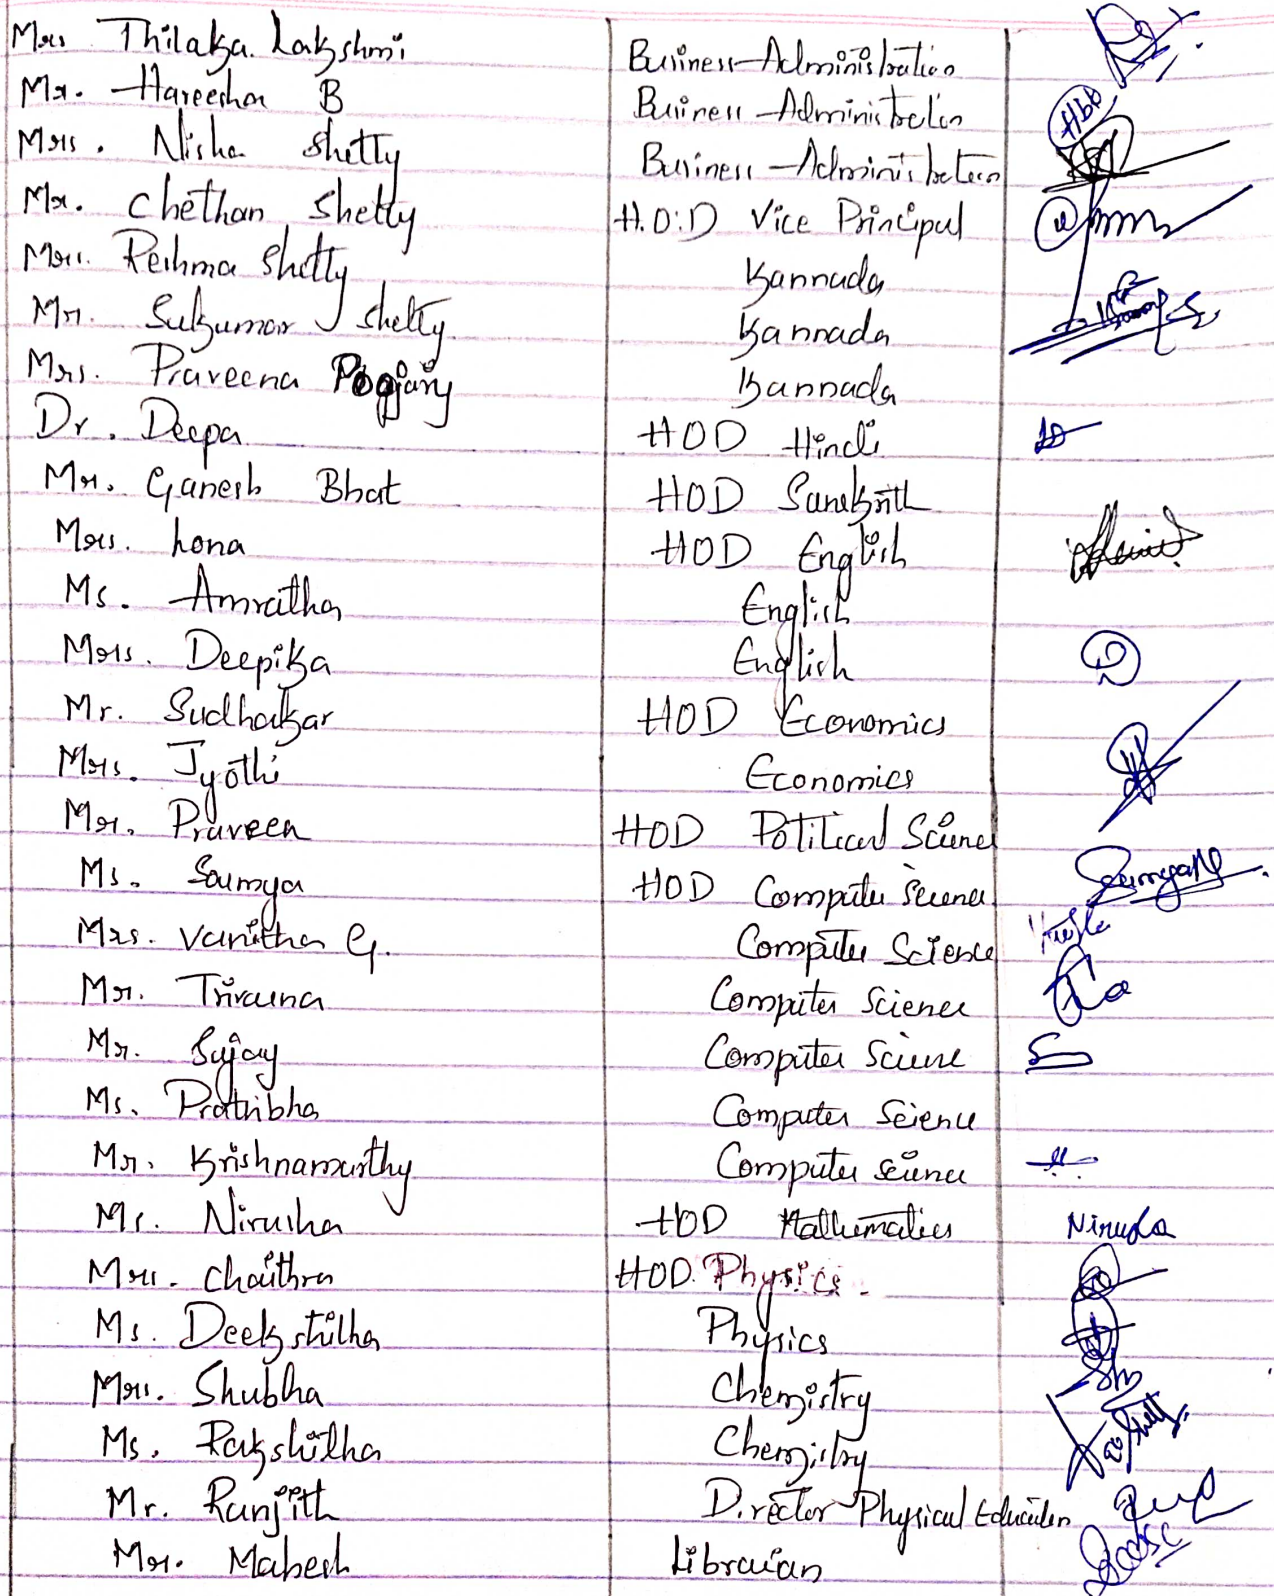 Mrs Thilaka Lakshmi Business Administration
Mr. Hareesha B Business Administration
Mrs. Nisha Shetty Business Administration
Mr. Chethan Shetty H.O.D Vice Principal
Mrs. Reshma Shetty Kannada
Mr. Sukumar Shetty Kannada
Mrs. Praveena Poojary Kannada
Dr. Deepa HOD Hindi
Mr. Ganesh Bhat HOD Sanskrith
Mrs. Lona HOD English
Ms. Amratha English
Mrs. Deepika English
Mr. Sudhakar HOD Economics
Mrs. Jyothi Economics
Mr. Praveen HOD Political Science
Ms. Soumya HOD Computer Science
Mrs. Vanitha G. Computer Science
Mr. Computer Science
Mr. Sujay Computer Science
Ms. Prathibha Computer Science
Mr. Krishnamurthy Computer Science
Ms. Nirusha HOD Mathematics Nirusha
Mrs. Chaithra HOD. Physics.
Ms. Deekshitha Physics
Mrs. Shubha Chemistry
Ms. Rakshitha Chemistry
Mr. Ranjith Director Physical Education
Mr. Mahesh Librarian